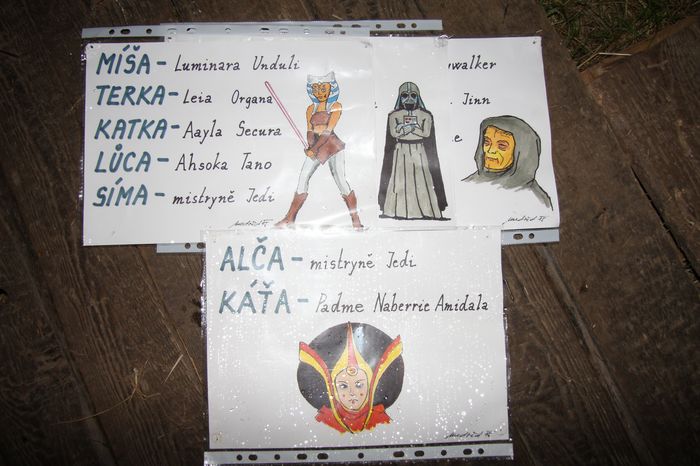 MÍŠA - Luminara Unduli
TERKA - Leia Organa
KATKA - Aayla Secura
LŮCA - Ahsoka Tano
SÍMA - mistryně Jedi
walker
Jinn
e
ALČA - mistryně Jedi
KÁŤA - Padme Naberrie Amidala